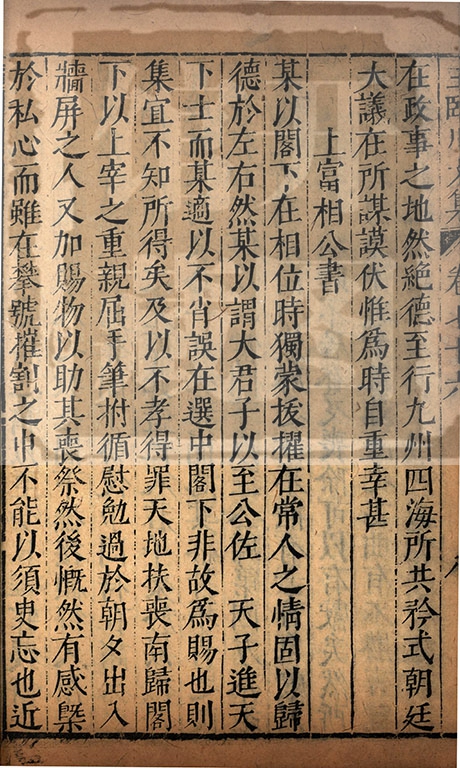 在政事之地然絶德至行九州四海所共矜式朝廷
大議在所謀謨伏惟爲時自重幸甚
上富相公書
某以閣下在相位時獨蒙拔擢在常人之情固以歸
德於左右然某以謂大君子以至公佐 天子進天
下士而某適以不肖誤在選中閣下非故爲賜也則
集宜不知所得矣及以不孝得罪天地扶喪南歸閣
下以上宰之重親屈手筆拊循慰勉過於朝夕出入
牆屏之人又加賜物以助其喪祭然後慨然有感槩
於私心而雖在攀號摧割之中不能以須史忘也近